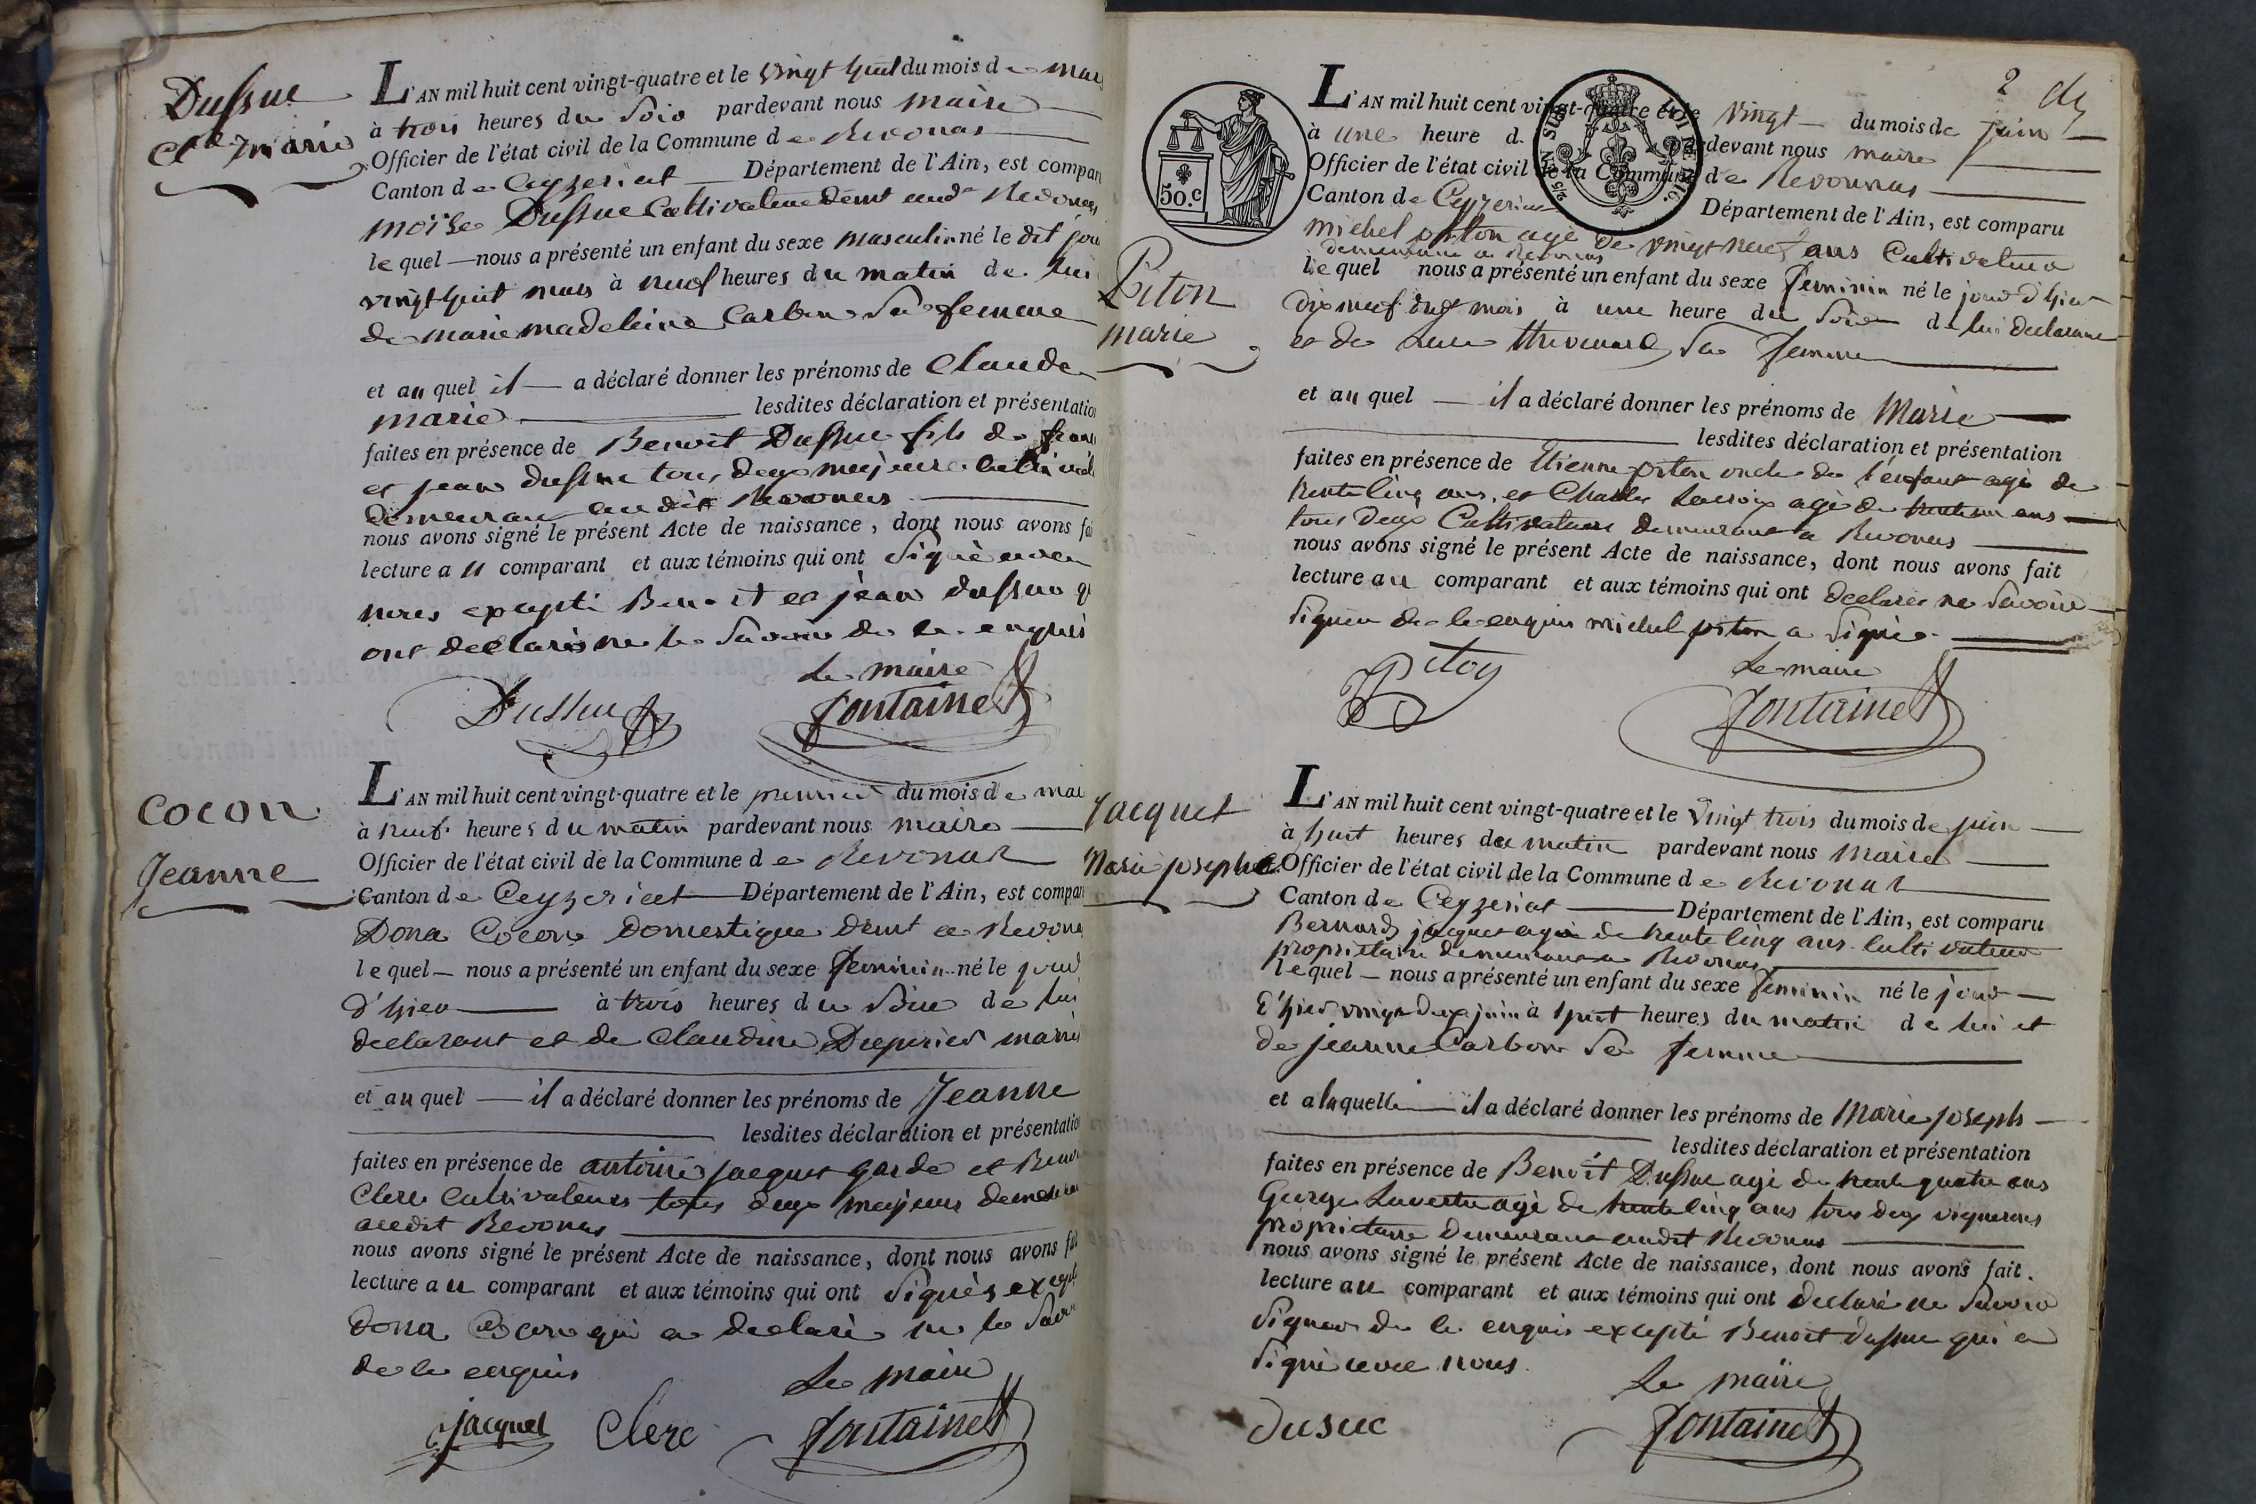 Dussuc
Cl.de marie
L'AN mil huit cent vingt-quatre et le vingt huit du mois de mars
à trois heures du Soir pardevant nous maire
Officier de l'état civil de la Commune de Revonas
Canton de Ceyzeriat Département de l'Ain, est compar
moïse Dussuc Cultivateur demt aud Revonas
lequel nous a présenté un enfant du sexe masculin né le dit jour
vingt huit mars à neuf heures du matin de lui
de marie madeleine Carbon Sa femme
et au quel il a déclaré donner les prénoms de Claude
marie lesdites déclaration et présentation
faites en présence de Benoit Dussuc fils de
et jean dussuc tous deux majeurs cultivat
demeurant au dit Revonas
nous avons signé le présent Acte de naissance, dont nous avons fai
lecture au comparant et aux témoins qui ont Signé avec
nous excepté Benoit et jean dussuc q
ont declarés ne le Savoir de ce enquis
Le maire
Dussuc Fontaine
Cocon
Jeanne
L'AN mil huit cent vingt-quatre et le premier du mois de mai
à neuf heures du matin pardevant nous maire
Officier de l'état civil de la Commune de Revonas
Canton de Ceyzeriat Département de l'Ain, est compar
Dona Cocon Domestique demt a Revonas
lequel nous a présenté un enfant du sexe feminin né le jour
d'hier à trois heures du Soir de lui
declarant et de Claudine Duperier marié
et au quel il a déclaré donner les prénoms de Jeanne
lesdites déclaration et présentation
faites en présence de antoine jacquet garde et Benoit
Clerc Cultivateurs tous deux majeurs demeurant
audit Revonas
nous avons signé le présent Acte de naissance, dont nous avons fai
lecture au comparant et aux témoins qui ont Signés excepté
Dona Cocon qui a declaré ne le Savoir
de ce enquis
Le maire
Jacquet Clerc Fontaine
2
50.c
L'AN mil huit cent vingt-quatre et le vingt du mois de juin
à une heure d pardevant nous maire
Officier de l'état civil de la Commune de Revonnas
Canton de Ceyzeriat Département de l'Ain, est comparu
michel piton agé de vingt neuf ans Cultivateur
demeurant a Revonas
Piton
marie
lequel nous a présenté un enfant du sexe feminin né le jour d'hier
dix neuf dud mois à une heure du Soir de lui declarant
et de Luce thevenard Sa femme
et au quel il a déclaré donner les prénoms de Marie
lesdites déclaration et présentation
faites en présence de Etienne piton oncle de l'enfant agé de
trente cinq ans, et Charles Lacroix agé de trente un ans
tous deux Cultivateurs demeurant a Revonas
nous avons signé le présent Acte de naissance, dont nous avons fait
lecture au comparant et aux témoins qui ont declarés ne Savoir
Signer de ce enquis michel piton a Signé
Le maire
Piton Fontaine
Jacquet
Marie josephe
L'AN mil huit cent vingt-quatre et le Vingt trois du mois de juin
à huit heures du matin pardevant nous Maire
Officier de l'état civil de la Commune de Revonas
Canton de Ceyzeriat Département de l'Ain, est comparu
Bernard jacquet agé de trente cinq ans cultivateur
propriétaire demeurant a Revonas
lequel nous a présenté un enfant du sexe feminin né le jour
d'hier vingt deux juin à huit heures du matin de lui et
de jeanne Carbon Sa femme
et a laquelle il a déclaré donner les prénoms de Marie joseph
lesdites déclaration et présentation
faites en présence de Benoit Dussuc agé de trente quatre ans
George Laverture agé de trente cinq ans tous deux vignerons
propriétaire demeurant audit Revonas
nous avons signé le présent Acte de naissance, dont nous avons fait
lecture au comparant et aux témoins qui ont declaré ne Savoir
Signer de ce enquis excepté Benoit dussuc qui a
Signé avec nous.
Le maire
dusuc Fontaine